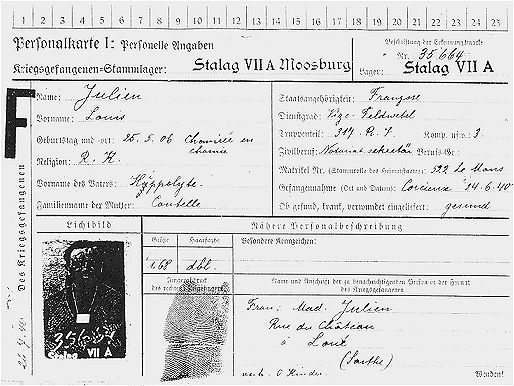 1 2 3 4 5 6 7 8 9 10 11 12 13 14 15 16 17 18 19 20 21 22 23
Personalkarte I: Personelle Angaben
Kriegsgefangenen-Stammlager: Stalag VII A Moosburg
Beschriftung der Erkennungsmarke
Nr. 35664
Lager: Stalag VII A
F
Des Kriegsgefangenen
Name: Julien
Vorname: Louis
Geburtstag und -ort: 25. 5. 06 en
Religion: R. K.
Vorname des Vaters: Hyppolyte.
Familienname der Mutter: Coutelle
Staatsangehörigkeit: Franzose
Dienstgrad: Vize-Feldwebel
Truppenteil: 317 R. I Komp. usw.: 3.
Zivilberuf: Notariatsekretär Berufs-Gr.:
Matrikel Nr. (Stammrolle des Heimatstaates): 322 Le Mans
Gefangennahme (Ort und Datum): Corcieux 24-6-40
Ob gesund, krank, verwundet eingeliefert: gesund
Lichtbild
Nähere Personalbeschreibung
Größe
Haarfarbe
Besondere Kennzeichen:
1.68
dbl.
Fingerabdruck
des rechten Zeigefingers
Name und Anschrift der zu benachrichtigenden Person in der Heimat
des Kriegsgefangenen
Frau: Mad. Julien
Rue du Château
à Loué
(Sarthe)
verh. 0 Kinder
Wenden!
Stalag VII A